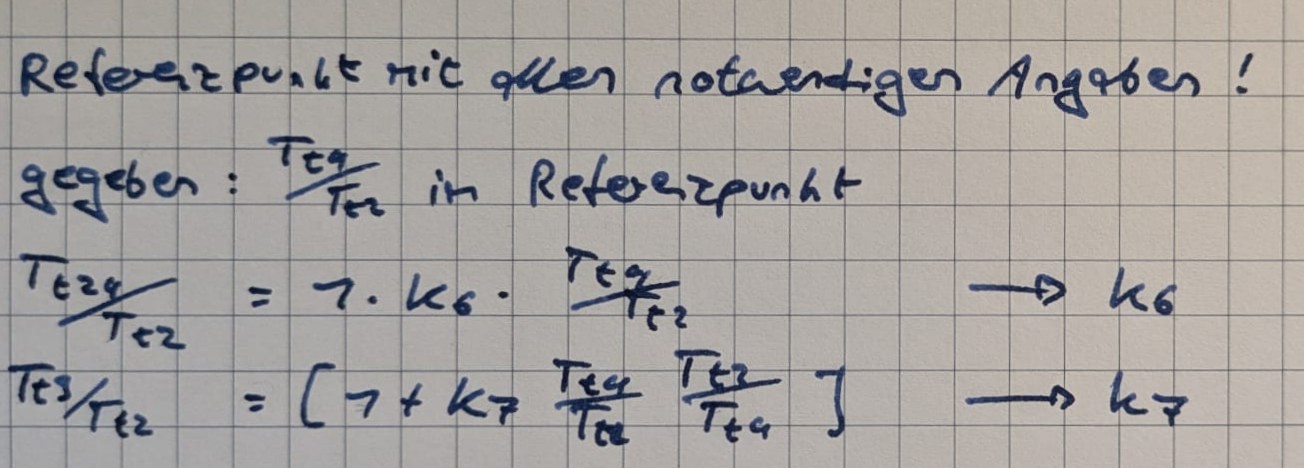 Referenzpunkt mit allen notwendigen Angaben !
gegeben : Tt4/Tt2 im Referenzpunkt
Tt24/Tt2 = 1 · K6 · Tt4/Tt2 → k6
Tt3/Tt2 = [ 1 + K7 Tt4/Tt2 Tt2/Tt4 ] → k7